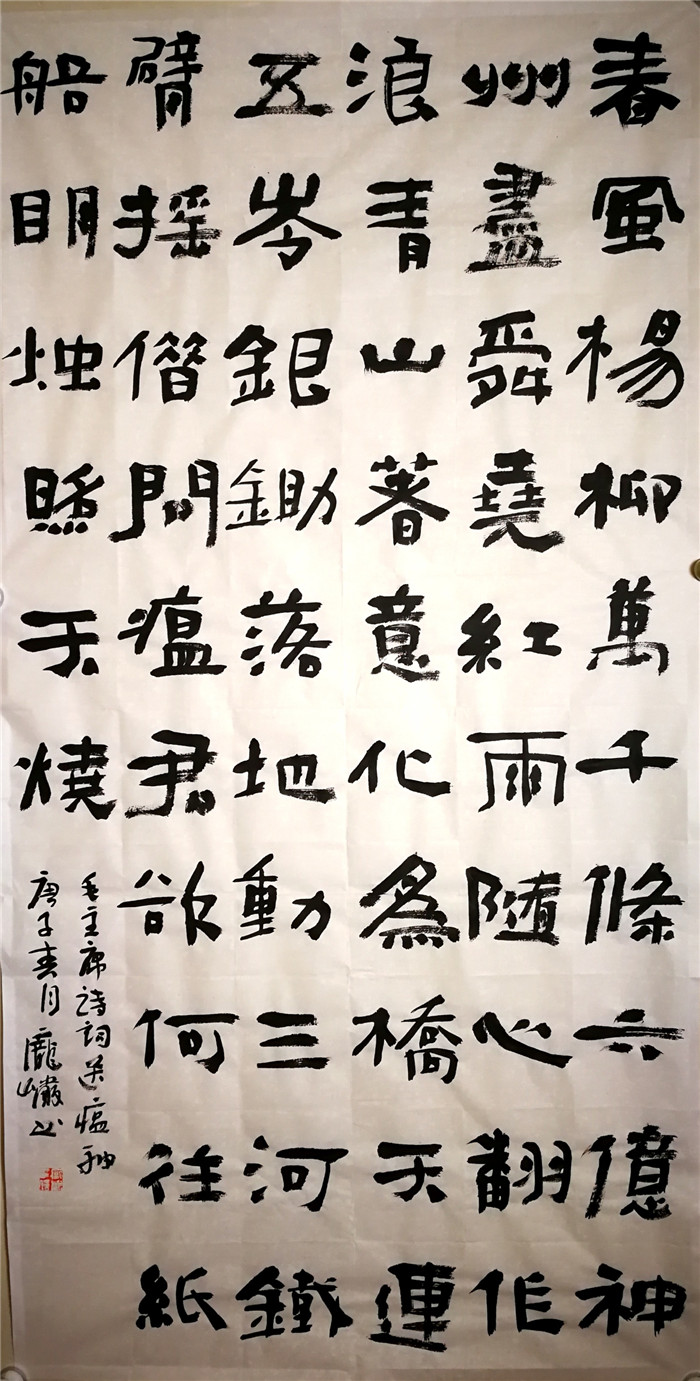 春風楊柳萬千條六億神
州盡舜堯紅雨隨心翻作
浪青山著意化為橋天連
五岑銀鋤落地動三河鐵
臂摇借問瘟君欲何往紙
船明烛照天燒
毛主席诗词送瘟神
庚子春月龐巗书